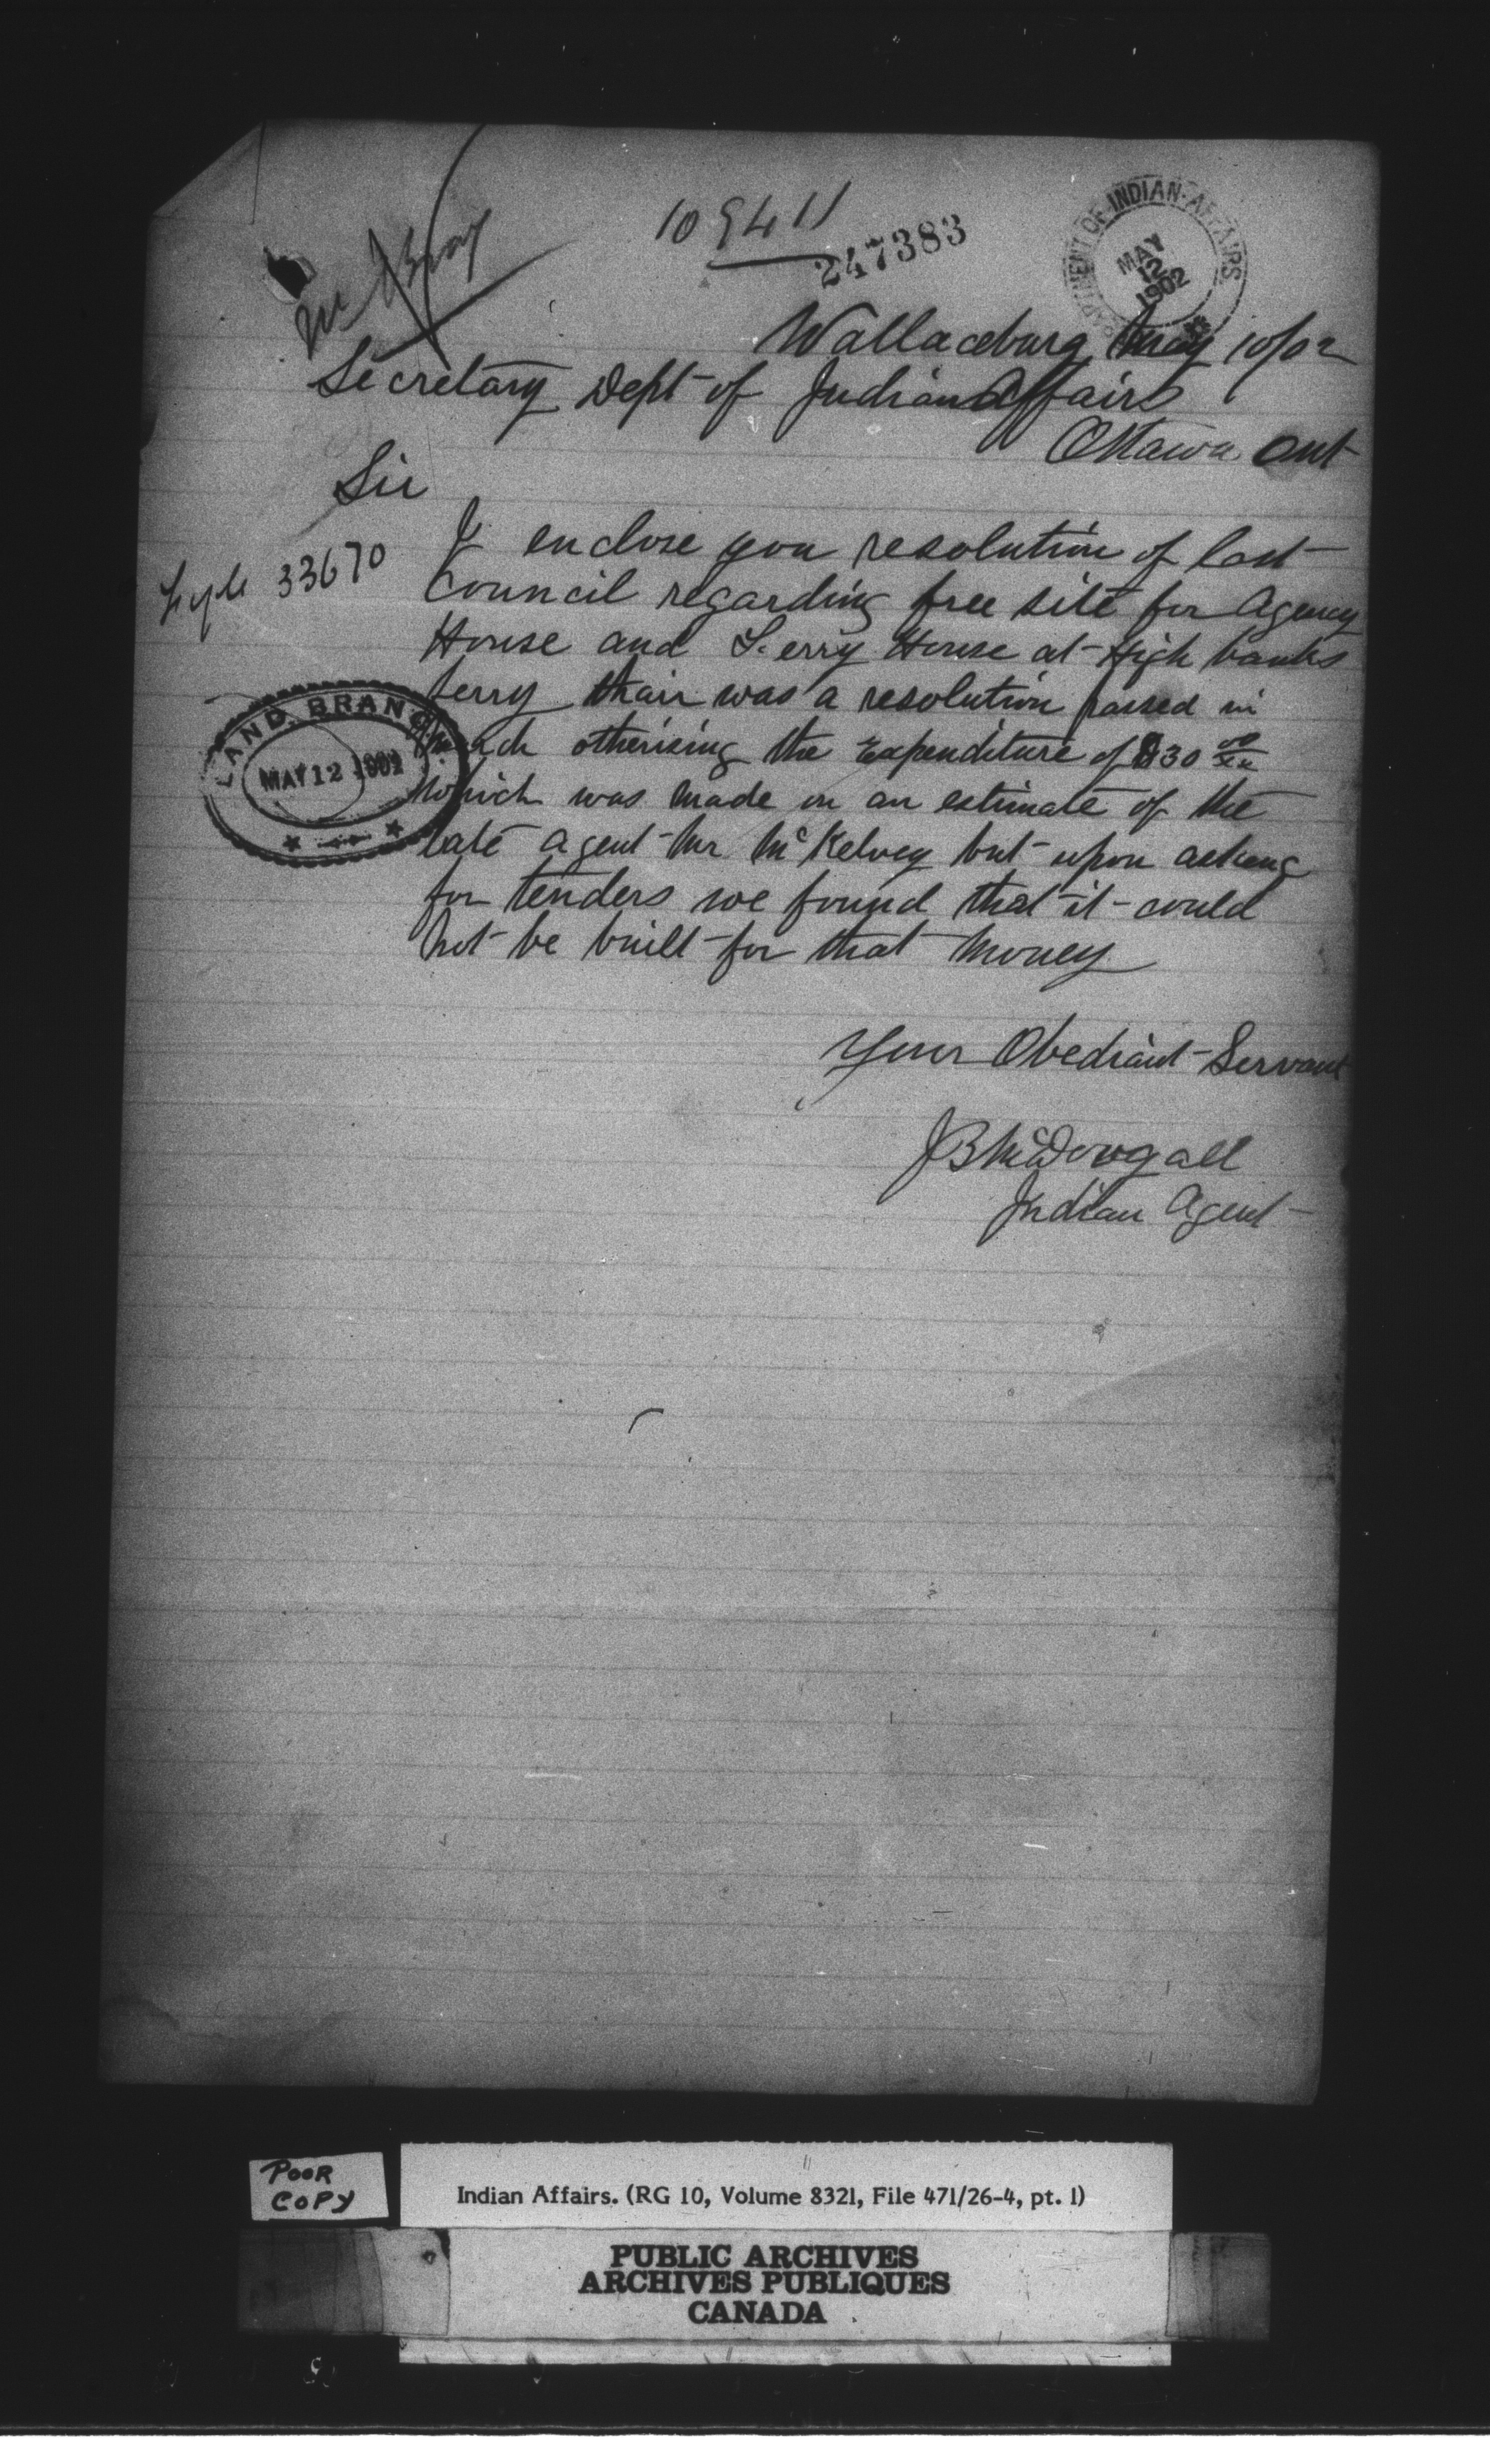 10 9411
247383
DEPARTMENT OF INDIAN AFFAIRS
MAY
12
1902
Mr Bray
Wallaceburg May 10/02
Secretary Dept of Indian Affairs
Ottawa Ont
Sir
33670
I enclose you resolution of last
Council regarding free site for Agency
House and Ferry House at High banks
ferry thair was a resolution passed in
March otherising the Expenditure of $30 00/xx
which was made on an estimate of the
late agent Mr McKelvey but upon asking
for tenders we found that it could
not be built for that money
LAND BRANCH
MAY 12 1902
Your Obediant Servant
JB McDougall
Indian Agent
POOR
COPY
Indian Affairs. (RG 10, Volume 8321, File 471/26-4, pt. 1)
PUBLIC ARCHIVES
ARCHIVES PUBLIQUES
CANADA